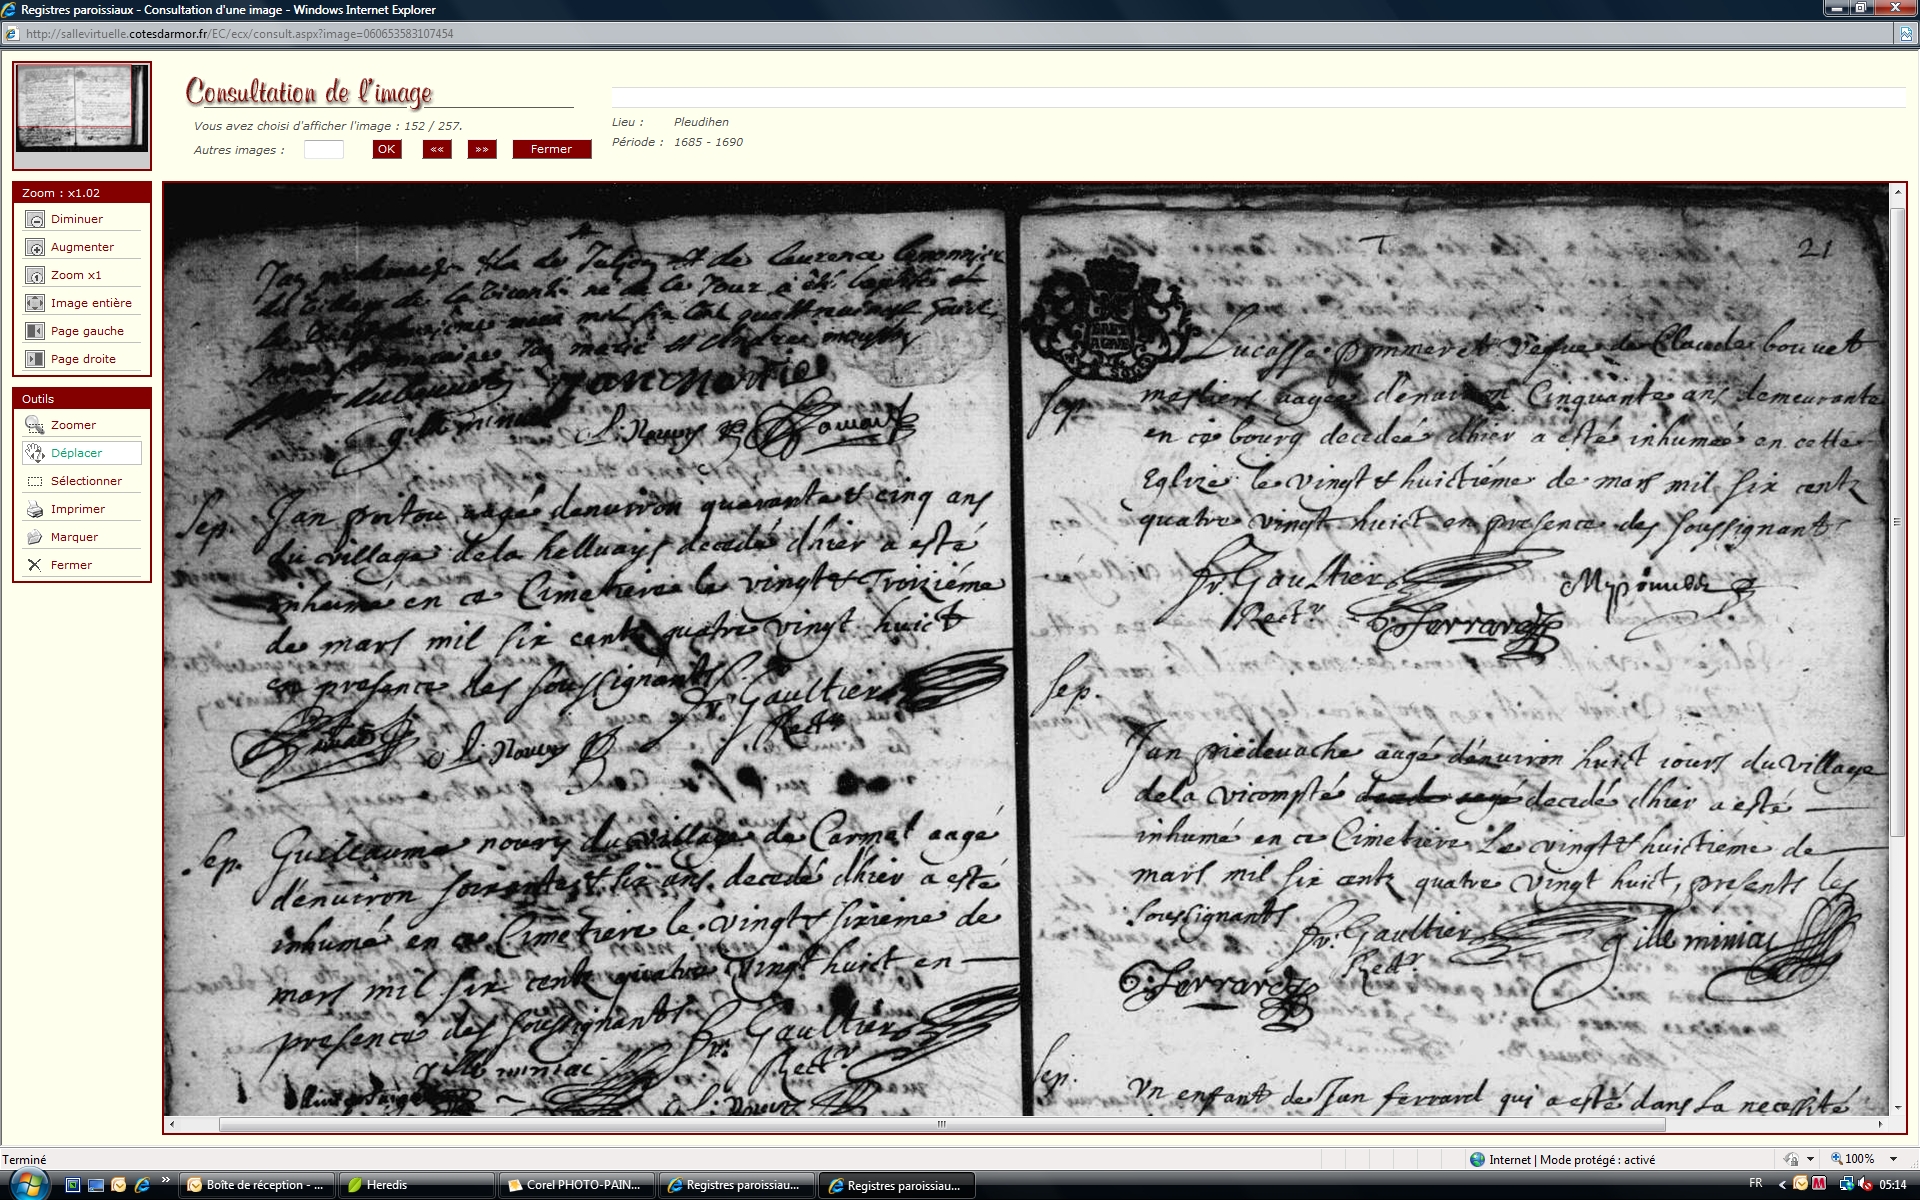 Registres paroissiaux - Consultation d'une image - Windows Internet Explorer
http://sallevirtuelle.cotesdarmor.fr/EC/ecx/consult.aspx?image=060653583107454
Consultation de l'image
Vous avez choisi d'afficher l'image : 152 / 257.
Autres images :
OK
««
»»
Fermer
Lieu : Pleudihen
Période : 1685 - 1690
Zoom : x1.02
Diminuer
Augmenter
Zoom x1
Image entière
Page gauche
Page droite
Outils
Zoomer
Déplacer
Sélectionner
Imprimer
Marquer
Fermer
de et de Laurence
de la ne de ce Jour a été baptisé
mil six cent
Jan
gille miniac
Sep. Jan poitou aagé denuiron quarante & cinq ans
du village dela decedé dhier a esté
inhumé en ce Cimetiere le vingt & Troiziéme
de mars mil six centz quatre vingt huict
en presence des soussignants
fr. Gaultier
Rectr
Sep. Guillaume noury du village de Carmel aagé
dénuiron soixante & six ans decedé dhier a esté
inhumé en ce Cimetiere le vingt & sixieme de
mars mil six centz quatre vingt huict en
presence des soussignants fr. Gaultier
Rectr
gille miniac
21
Lucasse pommeret vefue de Claude bouuet
Sep. aagée dénuiron Cinquante ans demeurante
en ce bourg decedeé dhier a esté inhumeé en cette
Eglize le vingt & huictiéme de mars mil six centz
quatre vingt huict en presence des soussignants
fr. Gaultier
Rectr
Ferrard
Sep.
Jan piedeuache aagé dénuiron huict iours du village
dela vicompté decedé dhier a esté
inhumé en ce Cimetiere Le vingt & huictiéme de
mars mil six centz quatre vingt huict, presents les
soussignants
fr. Gaultier
Rectr
gille miniac
Ferrard
Sep. Vn enfant de Jan ferrard qui a esté dans La necessité
Terminé
Internet | Mode protégé : activé
100%
Boîte de réception - ...
Heredis
Corel PHOTO-PAIN...
Registres paroissiau...
Registres paroissiau...
FR
05:14